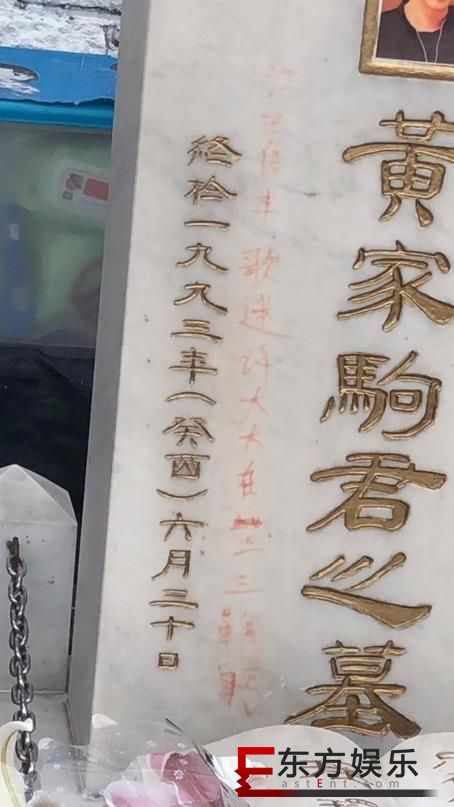 黃家駒君之墓
江西信丰歌迷许大大在三鞠躬
終扵一九九三年(癸酉)六月三十日
东方娱乐
EastEnt.com